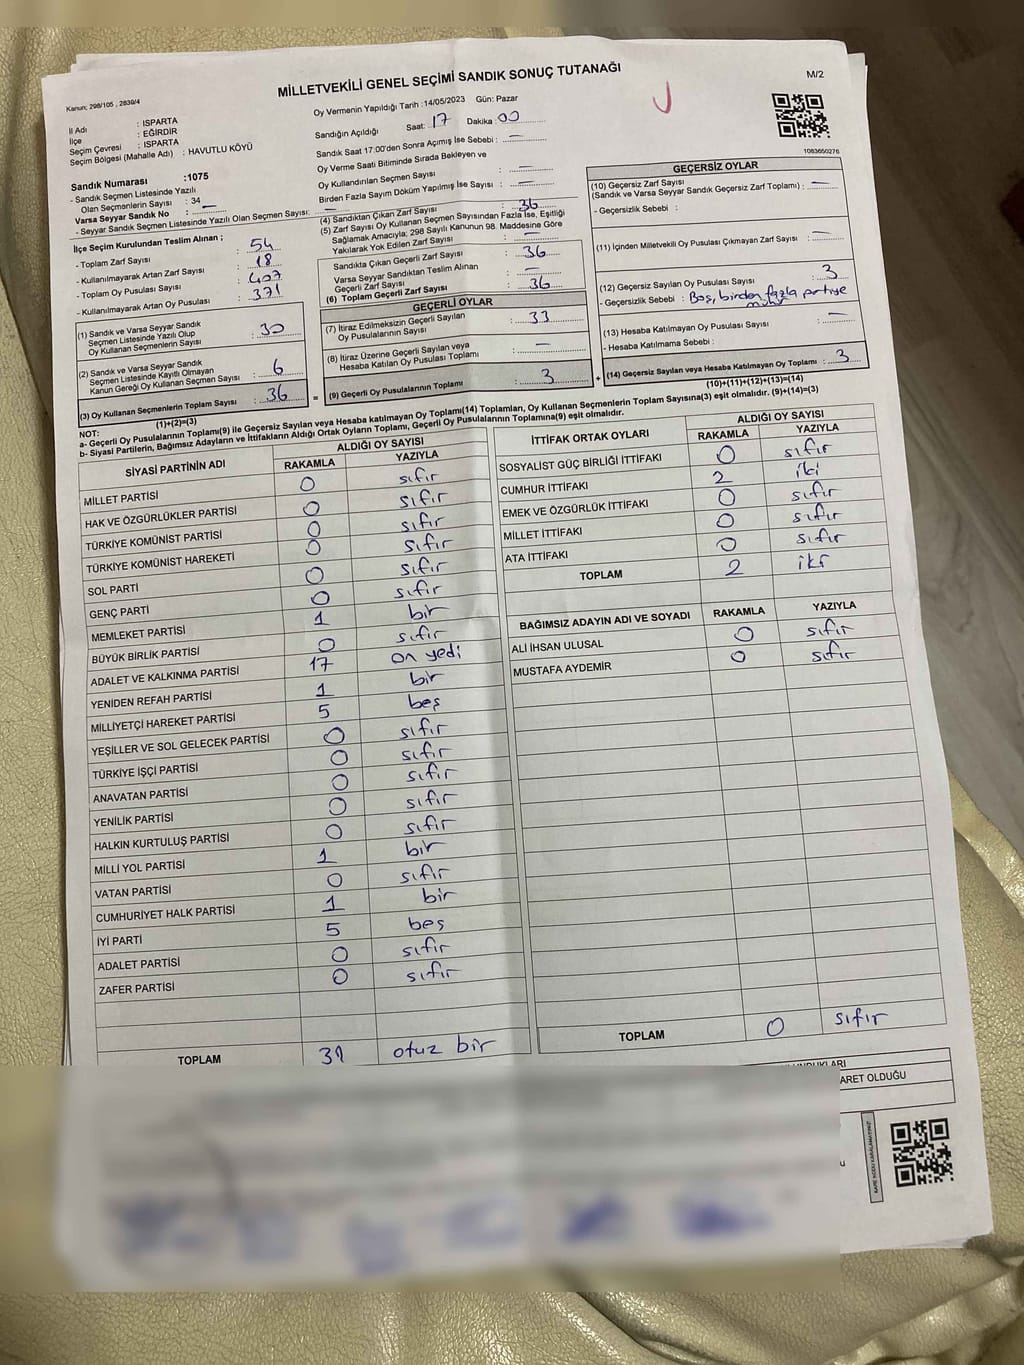 MİLLETVEKİLİ GENEL SEÇİMİ SANDIK SONUÇ TUTANAĞI
M/2
Kanun; 298/105 , 2839/4
Oy Vermenin Yapıldığı Tarih :14/05/2023 Gün: Pazar
İl Adı : ISPARTA
İlçe : EĞİRDİR
Seçim Çevresi : ISPARTA
Seçim Bölgesi (Mahalle Adı) : HAVUTLU KÖYÜ
Sandığın Açıldığı Saat: 17 Dakika: 00
Sandık Saat 17:00'den Sonra Açımış İse Sebebi : —
Oy Verme Saati Bitiminde Sırada Bekleyen ve
Oy Kullandırılan Seçmen Sayısı : —
Birden Fazla Sayım Döküm Yapılmış İse Sayısı : —
1083650276
Sandık Numarası :1075
- Sandık Seçmen Listesinde Yazılı
Olan Seçmenlerin Sayısı : 34
Varsa Seyyar Sandık No : —
- Seyyar Sandık Seçmen Listesinde Yazılı Olan Seçmen Sayısı: —
İlçe Seçim Kurulundan Teslim Alınan ;
- Toplam Zarf Sayısı : 54
- Kullanılmayarak Artan Zarf Sayısı : 18
- Toplam Oy Pusulası Sayısı : 407
- Kullanılmayarak Artan Oy Pusulası : 371
(1) Sandık ve Varsa Seyyar Sandık
Seçmen Listesinde Yazılı Olup
Oy Kullanan Seçmenlerin Sayısı : 30
(2) Sandık ve Varsa Seyyar Sandık
Seçmen Listesinde Kayıtlı Olmayan
Kanun Gereği Oy Kullanan Seçmen Sayısı : 6
(3) Oy Kullanan Seçmenlerin Toplam Sayısı : 36
(1)+(2)=(3)
(4) Sandıktan Çıkan Zarf Sayısı : 36
(5) Zarf Sayısı Oy Kullanan Seçmen Sayısından Fazla İse, Eşitliği
Sağlamak Amacıyla; 298 Sayılı Kanunun 98. Maddesine Göre
Yakılarak Yok Edilen Zarf Sayısı : —
Sandıkta Çıkan Geçerli Zarf Sayısı : 36
Varsa Seyyar Sandıktan Teslim Alınan
Geçerli Zarf Sayısı : —
(6) Toplam Geçerli Zarf Sayısı : 36
GEÇERLİ OYLAR
(7) İtiraz Edilmeksizin Geçerli Sayılan
Oy Pusulalarının Sayısı : 33
(8) İtiraz Üzerine Geçerli Sayılan veya
Hesaba Katılan Oy Pusulası Toplamı : —
= (9) Geçerli Oy Pusulalarının Toplamı : 3
GEÇERSİZ OYLAR
(10) Geçersiz Zarf Sayısı
(Sandık ve Varsa Seyyar Sandık Geçersiz Zarf Toplamı) : —
- Geçersizlik Sebebi :
(11) İçinden Milletvekili Oy Pusulası Çıkmayan Zarf Sayısı : —
(12) Geçersiz Sayılan Oy Pusulası Sayısı : 3
- Geçersizlik Sebebi : Boş, birden fazla partiye
mühür
(13) Hesaba Katılmayan Oy Pusulası Sayısı : —
- Hesaba Katılmama Sebebi :
+ (14) Geçersiz Sayılan veya Hesaba Katılmayan Oy Toplamı : 3
(10)+(11)+(12)+(13)=(14)
NOT:
a- Geçerli Oy Pusulalarının Toplamı(9) ile Geçersiz Sayılan veya Hesaba katılmayan Oy Toplamı(14) Toplamları, Oy Kullanan Seçmenlerin Toplam Sayısına(3) eşit olmalıdır. (9)+(14)=(3)
b- Siyasi Partilerin, Bağımsız Adayların ve İttifakların Aldığı Ortak Oyların Toplamı, Geçerli Oy Pusulalarının Toplamına(9) eşit olmalıdır.
SİYASİ PARTİNİN ADI ALDIĞI OY SAYISI
RAKAMLA YAZIYLA
MİLLET PARTİSİ 0 sıfır
HAK VE ÖZGÜRLÜKLER PARTİSİ 0 sıfır
TÜRKİYE KOMÜNİST PARTİSİ 0 sıfır
TÜRKİYE KOMÜNİST HAREKETİ 0 sıfır
SOL PARTİ 0 sıfır
GENÇ PARTİ 0 sıfır
MEMLEKET PARTİSİ 1 bir
BÜYÜK BİRLİK PARTİSİ 0 sıfır
ADALET VE KALKINMA PARTİSİ 17 on yedi
YENİDEN REFAH PARTİSİ 1 bir
MİLLİYETÇİ HAREKET PARTİSİ 5 beş
YEŞİLLER VE SOL GELECEK PARTİSİ 0 sıfır
TÜRKİYE İŞÇİ PARTİSİ 0 sıfır
ANAVATAN PARTİSİ 0 sıfır
YENİLİK PARTİSİ 0 sıfır
HALKIN KURTULUŞ PARTİSİ 0 sıfır
MİLLİ YOL PARTİSİ 1 bir
VATAN PARTİSİ 0 sıfır
CUMHURİYET HALK PARTİSİ 1 bir
İYİ PARTİ 5 beş
ADALET PARTİSİ 0 sıfır
ZAFER PARTİSİ 0 sıfır
TOPLAM 31 otuz bir
İTTİFAK ORTAK OYLARI ALDIĞI OY SAYISI
RAKAMLA YAZIYLA
SOSYALİST GÜÇ BİRLİĞİ İTTİFAKI 0 sıfır
CUMHUR İTTİFAKI 2 iki
EMEK VE ÖZGÜRLÜK İTTİFAKI 0 sıfır
MİLLET İTTİFAKI 0 sıfır
ATA İTTİFAKI 0 sıfır
TOPLAM 2 iki
BAĞIMSIZ ADAYIN ADI VE SOYADI RAKAMLA YAZIYLA
ALİ İHSAN ULUSAL 0 sıfır
MUSTAFA AYDEMİR 0 sıfır
TOPLAM 0 sıfır
ARET OLDUĞU